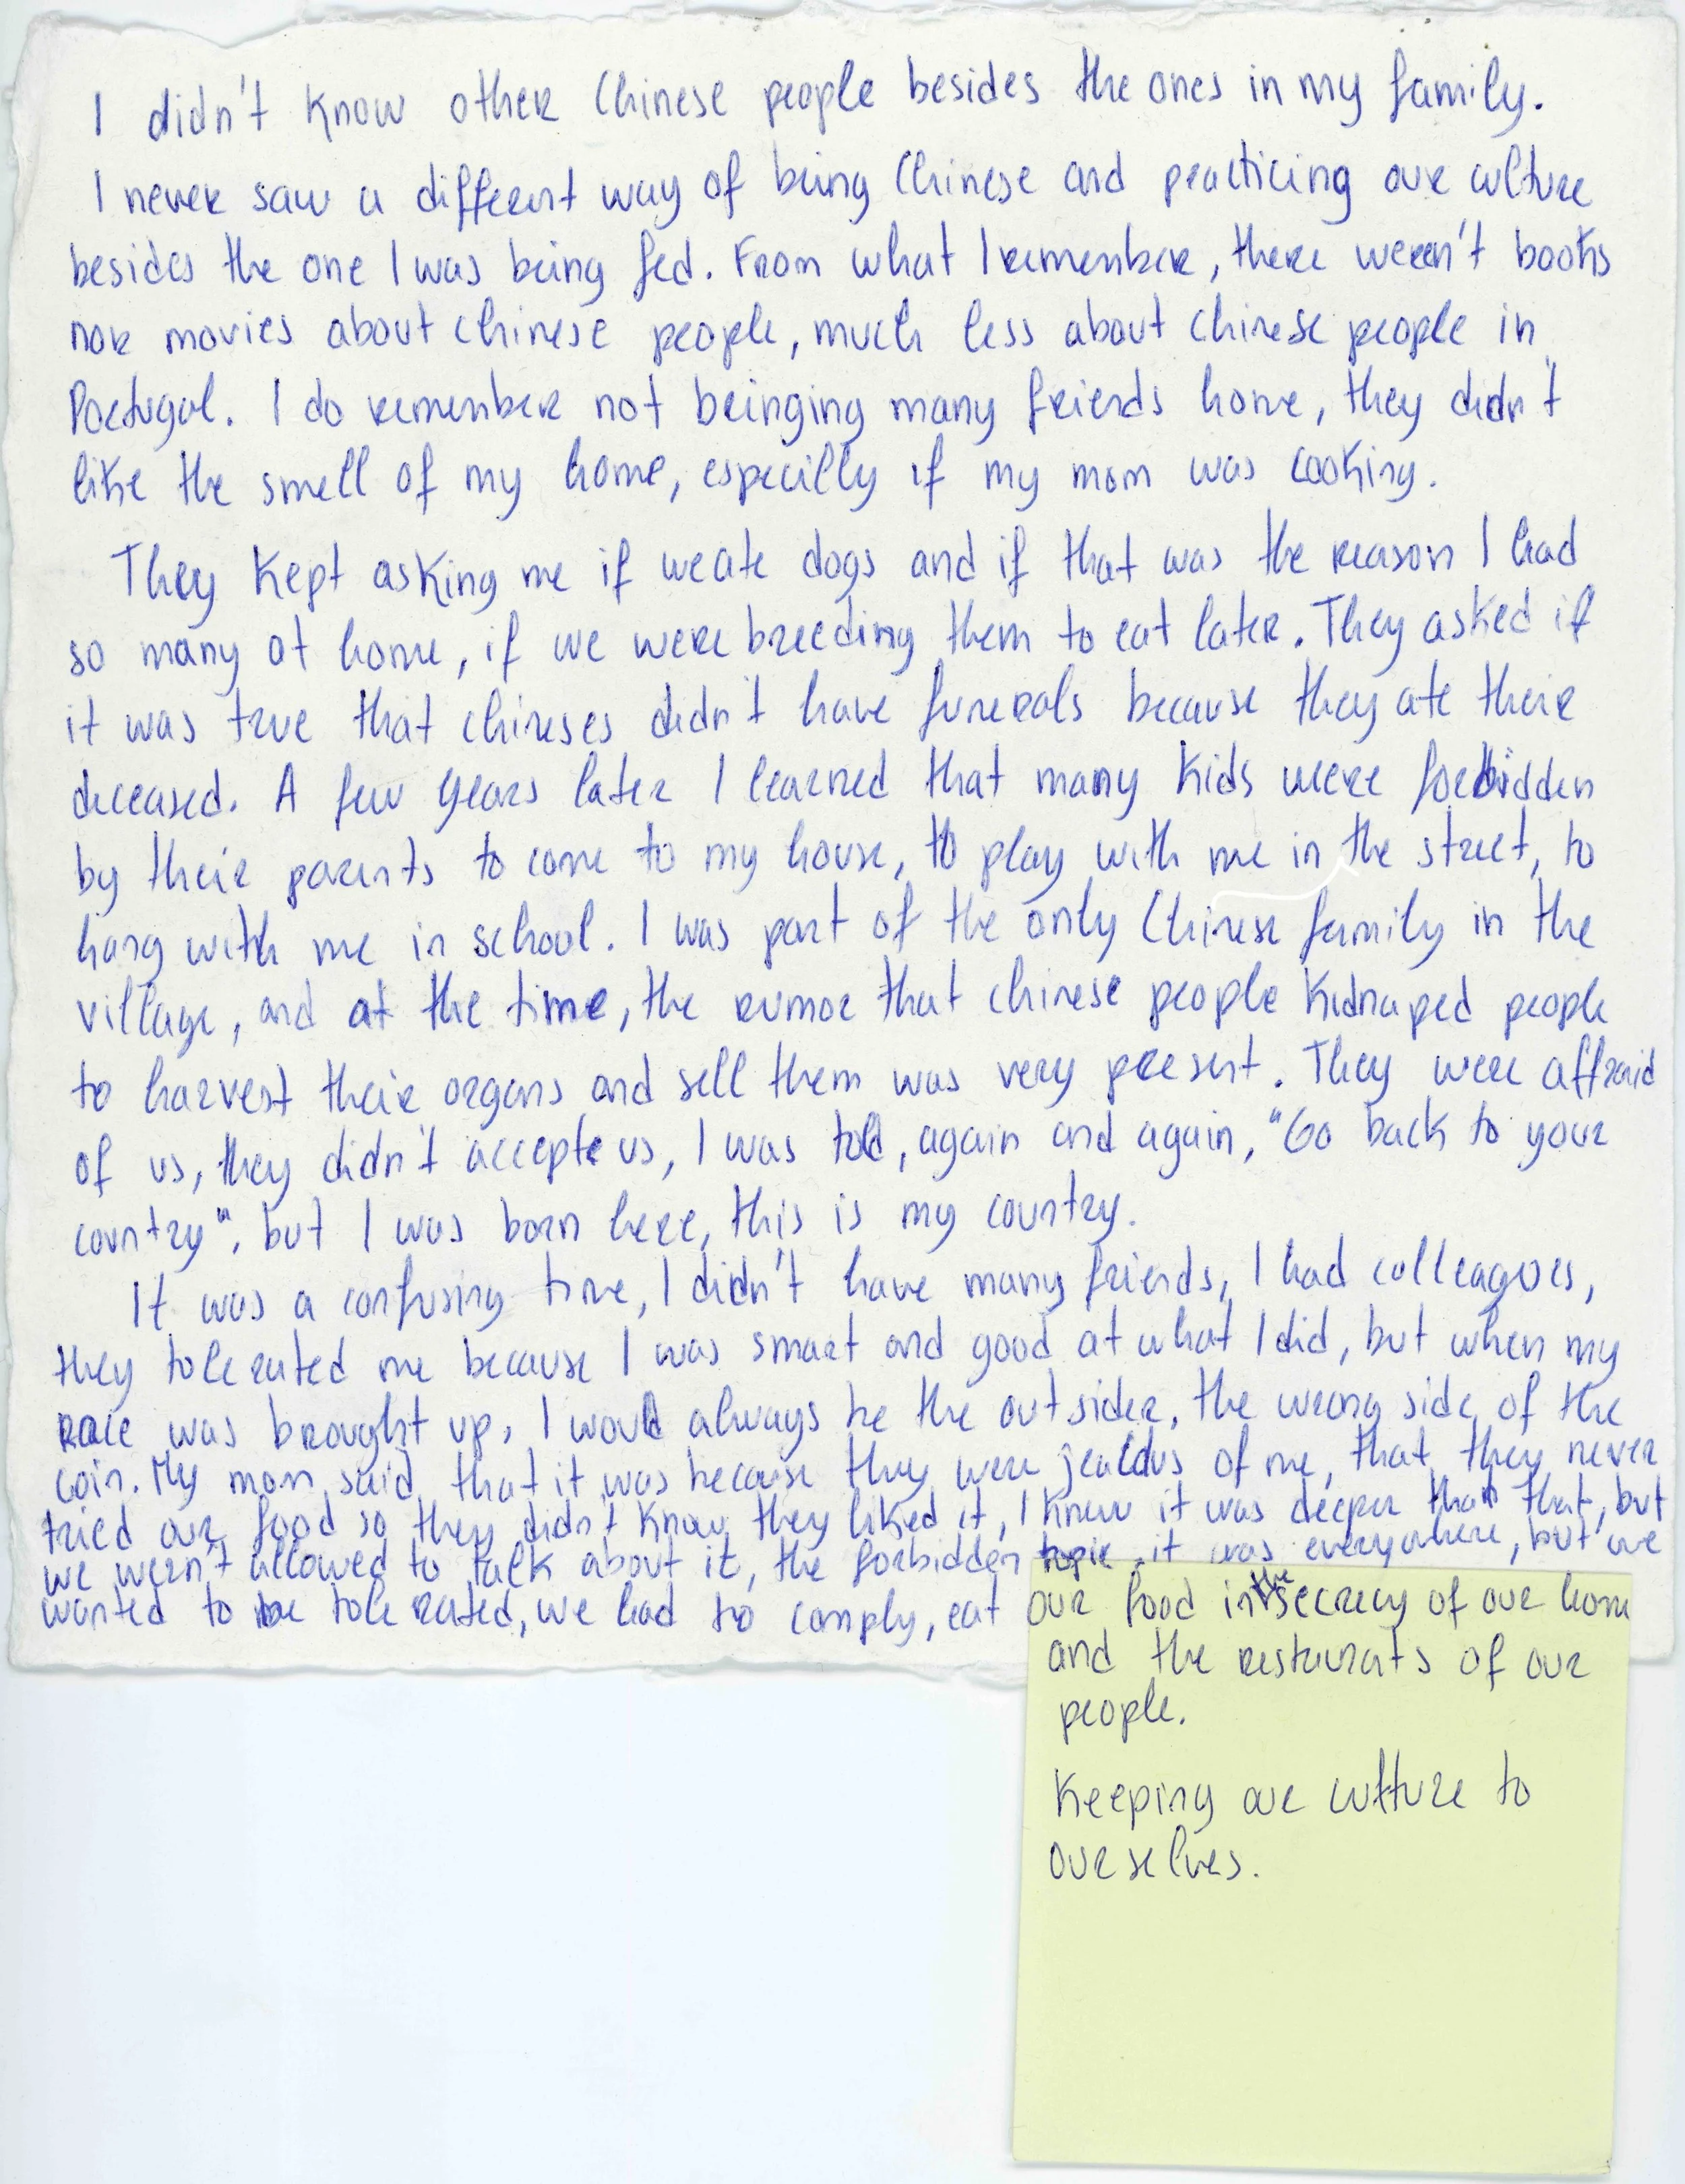 I didn't know other Chinese people besides the ones in my family.
I never saw a different way of being Chinese and practicing our culture
besides the one I was being fed. From what I remember, there weren't books
nor movies about chinese people, much less about chinese people in
Portugal. I do remember not bringing many friends home, they didn't
like the smell of my home, especilly if my mom was cooking.
They kept asking me if we ate dogs and if that was the reason I had
so many at home, if we were breeding them to eat later. They asked if
it was true that chineses didn't have funerals because they ate their
deceased. A few years later I learned that many kids were forbidden
by their parents to come to my house, to play with me in the street, to
hang with me in school. I was part of the only Chinese family in the
village, and at the time, the rumor that chinese people kidnaped people
to harvest their organs and sell them was very present. They were affraid
of us, they didn't accepte us, I was told, again and again, "Go back to your
country", but I was born here, this is my country.
It was a confusing time, I didn't have many friends, I had colleagues,
they tolerated me because I was smart and good at what I did, but when my
race was brought up, I would always be the outsider, the wrong side of the
coin. My mom said that it was because they were jealous of me, that they never
tried our food so they didn't know they liked it, I knew it was deeper than that, but
we wern't allowed to talk about it, the forbidden topic, it was everywhere, but we
wanted to be tolerated, we had to comply, eat our food in the secrecy of our home
and the restaurats of our
people.
Keeping our culture to
ourselves.